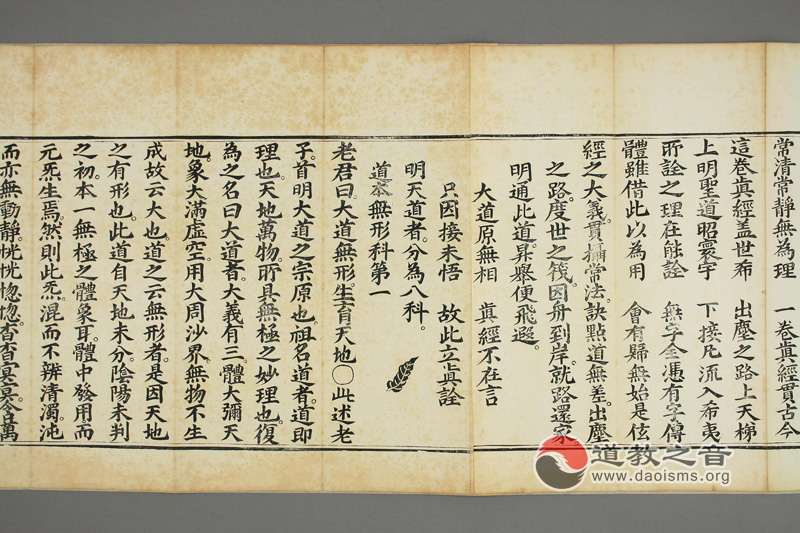 常清常靜無為理　一卷眞經貫古今
這卷眞經盖世希　出塵之路上天梯
上明聖道昭寰宇　下接凡流入希夷
所詮之理在能詮　無字全憑有字傳
體雖借此以為用　會有歸無始是伭
經之大義貫攝常法訣點道無差出塵
之路度世之筏因舟到岸就路還家
明通此道昇擧便飛遐
大道原無相　眞經不在言
只因接未悟　故此立眞詮
明天道者分為八科
道本無形科第一
老君曰大道無形生育天地〇此述老
子首明大道之宗原也祖名道者道即
理也天地萬物所具無極之妙理也復
為之名曰大道者大義有三體大彌天
地象大滿虛空用大周沙界無物不生
成故云大也道之云無形者是因天地
之有形也此道自天地未分陰陽未判
之初本一無極之體象耳體中發用而
元炁生焉然則此炁混而不辨清濁沌
而亦無動靜恍恍惚惚杳杳冥冥含萬
道教之音
www.daoisms.org